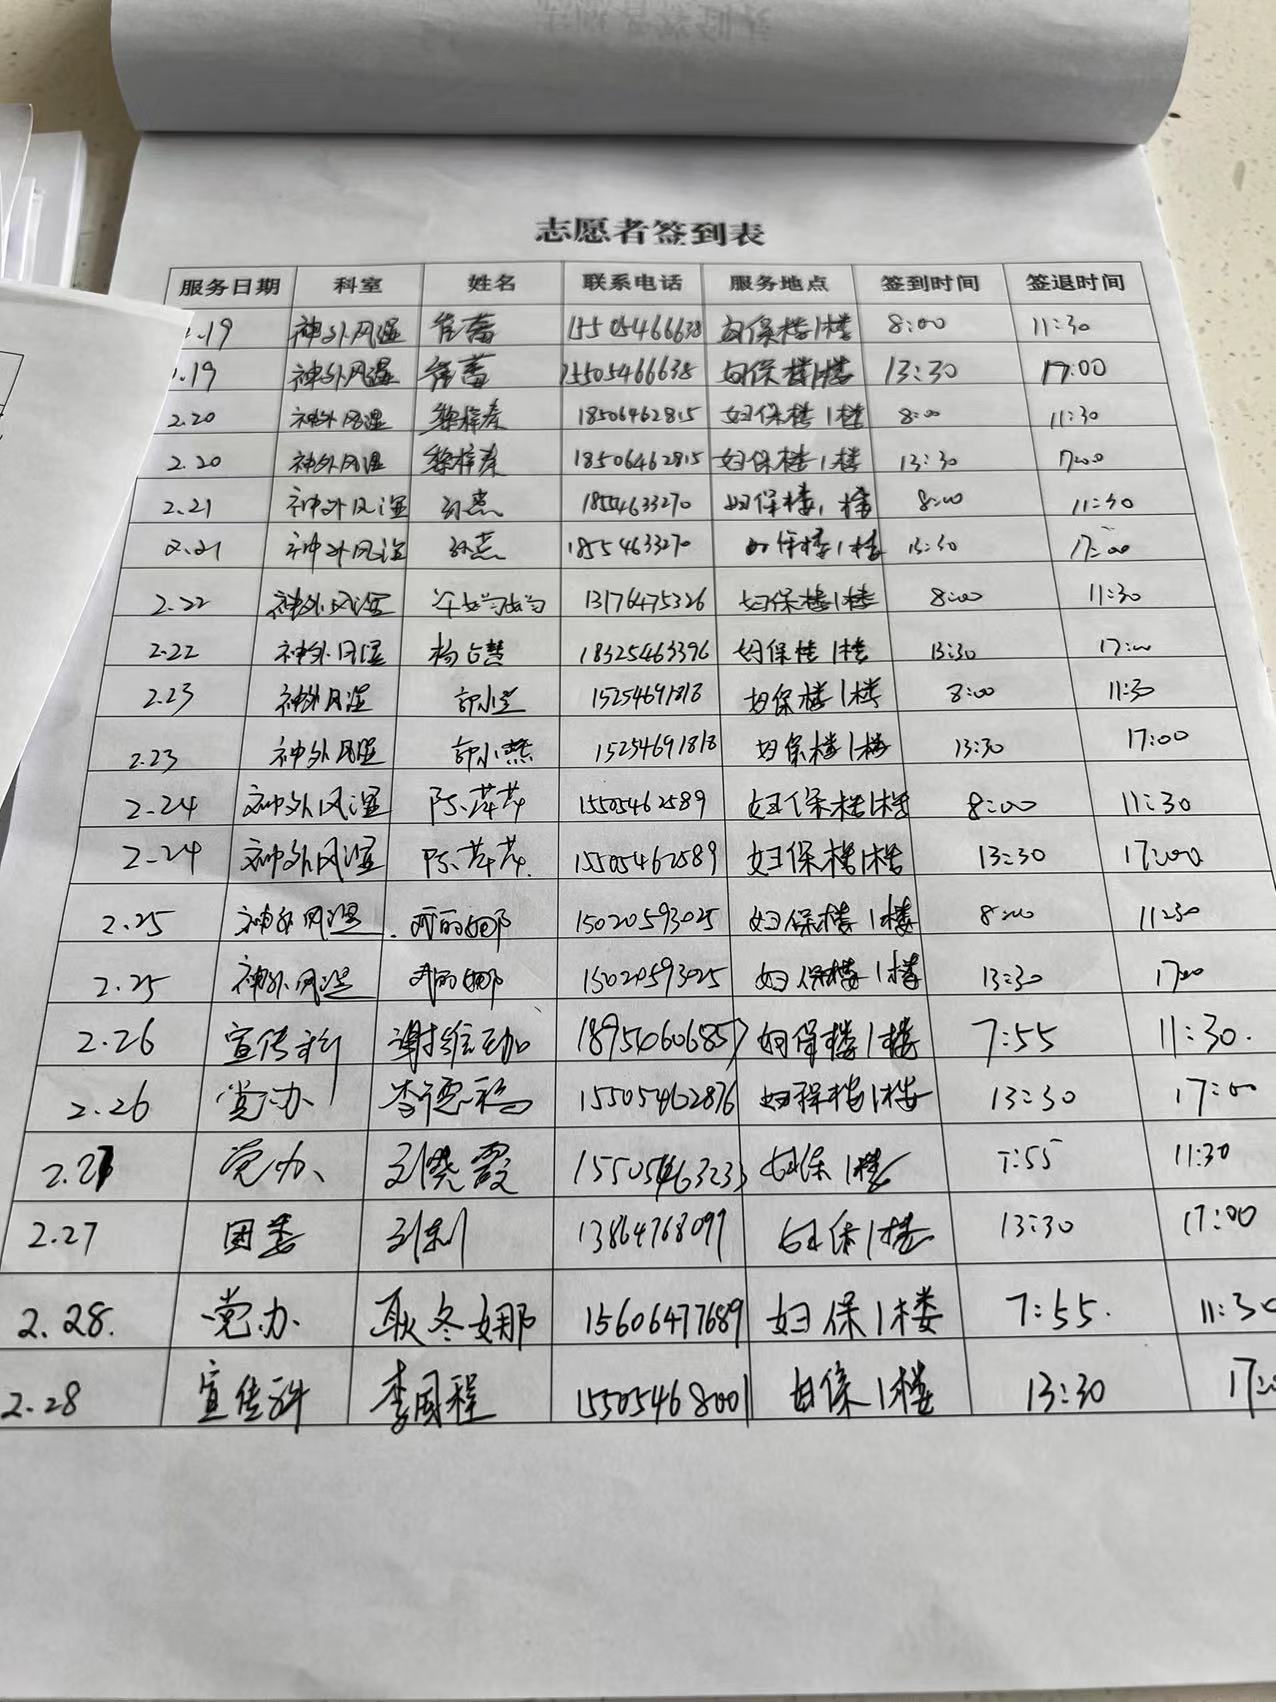 志愿者签到表
服务日期 科室 姓名 联系电话 服务地点 签到时间 签退时间
.19 神外风湿 15505466638 妇保楼1楼 8:00 11:30
.19 神外风湿 15505466638 妇保楼1楼 13:30 17:00
2.20 神外风湿 黎梓彦 18506462815 妇保楼1楼 8:00 11:30
2.20 神外风湿 黎梓彦 18506462815 妇保楼1楼 13:30 17:00
2.21 神外风湿 18554633270 妇保楼1楼 8:00 11:30
2.21 神外风湿 18554633270 妇保楼1楼 13:30 17:00
2.22 神外风湿 13176475326 妇保楼1楼 8:00 11:30
2.22 神外风湿 杨占慧 18325463396 妇保楼1楼 13:30 17:00
2.23 神外风湿 15254691818 妇保楼1楼 8:00 11:30
2.23 神外风湿 郭小燕 15254691818 妇保楼1楼 13:30 17:00
2.24 神外风湿 陈芹芹 15505462589 妇保楼1楼 8:00 11:30
2.24 神外风湿 陈芹芹 15505462589 妇保楼1楼 13:30 17:00
2.25 神外风湿 15020593025 妇保楼1楼 8:00 11:30
2.25 神外风湿 15020593025 妇保楼1楼 13:30 17:00
2.26 宣传科 18954060685 妇保楼1楼 7:55 11:30.
2.26 党办 李德福 15505462876 妇保楼1楼 13:30 17:00
2.27 党办 刘晓霞 15505463233 妇保1楼 7:55 11:30
2.27 团委 刘利 13864768097 妇保1楼 13:30 17:00
2.28. 党办 耿冬娜 15606477689 妇保1楼 7:55. 11:30
2.28 宣传科 李国程 15505468001 妇保1楼 13:30 17: